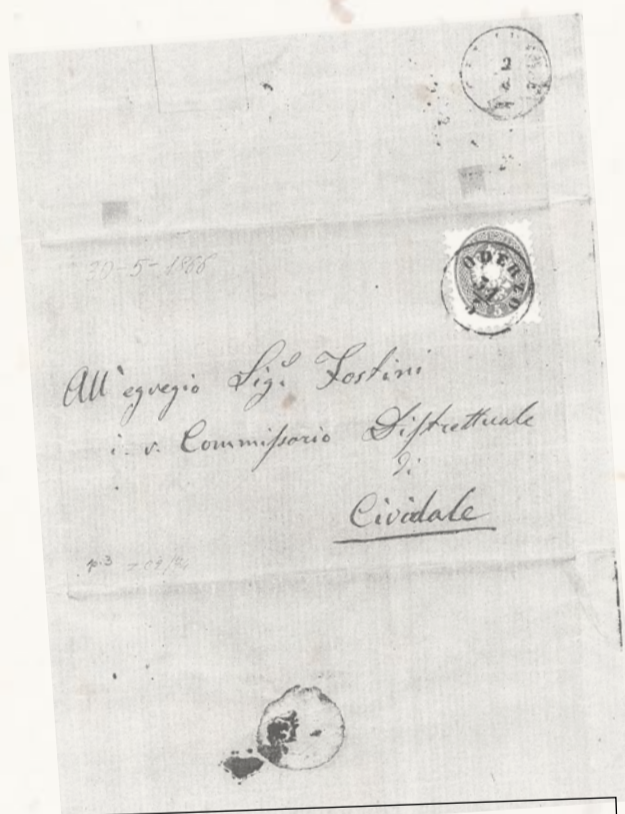 2
20-5-1866
ODERZO
All'egregio Sigr Tostini
i. r. Commissario Distrettuale
di
Cividale
p. 3